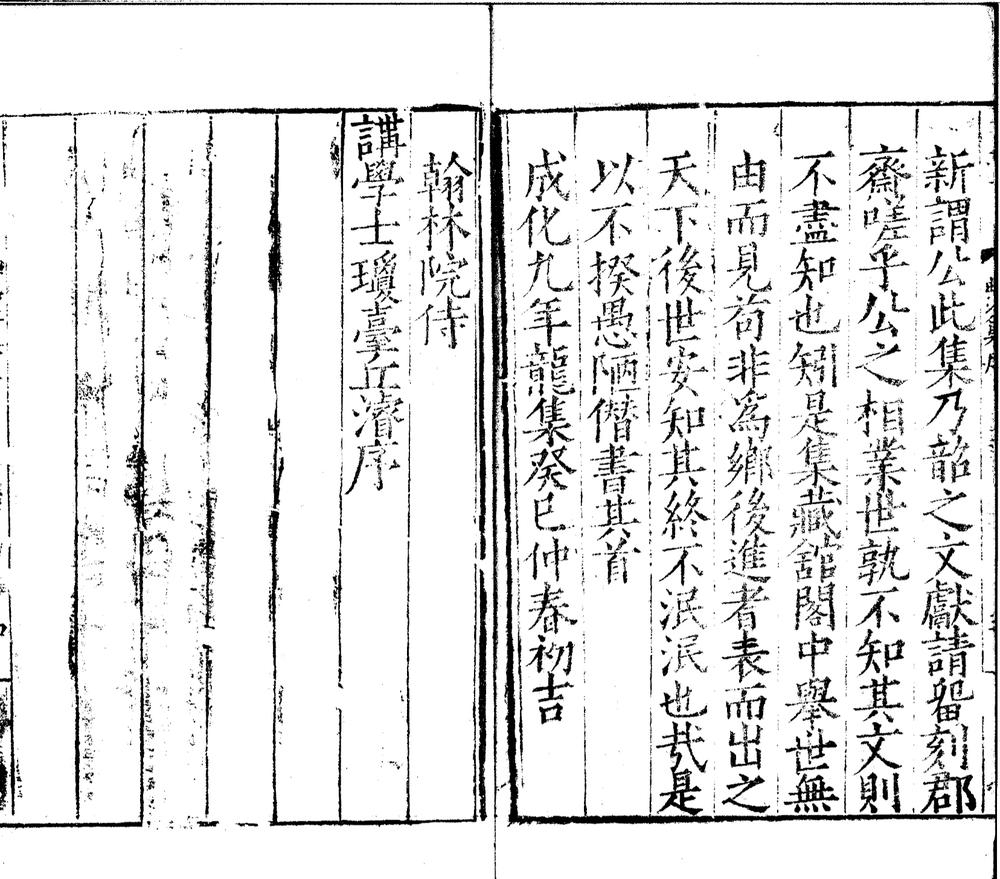 新謂公此集乃韶之文獻請畱刻郡
齋嗟乎公之相業世孰不知其文則
不盡知也矧是集藏舘閣中舉世無
由而見茍非為鄉後進者表而出之
天下後世安知其終不泯泯也㢤是
以不揆愚陋僭書其首
成化九年龍集癸巳仲春初吉
翰林院侍
講學士瓊臺丘濬序